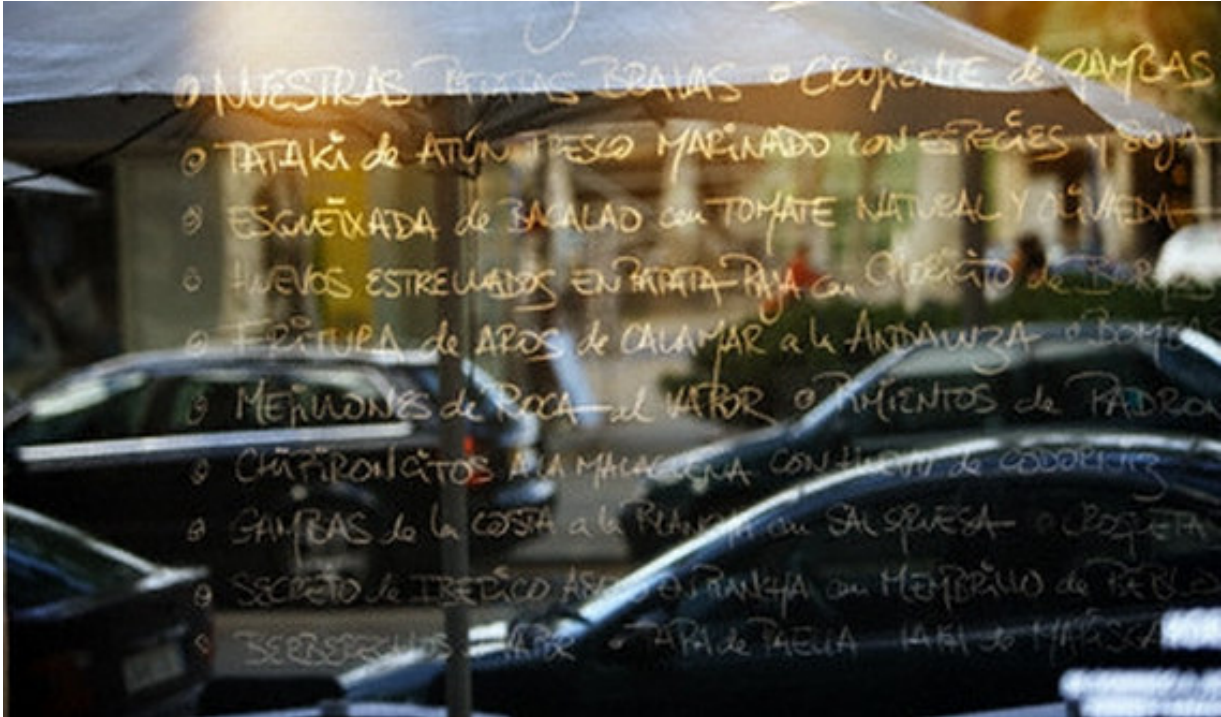 NUESTRAS PATATAS BRAVAS • CRUJIENTE de GAMBAS
TATAKI de ATUN FRESCO MARINADO CON ESPECIES Y SOJA
ESQUEIXADA de BACALAO con TOMATE NATURAL Y OLIVADA
HUEVOS ESTRELLADOS EN PATATA PAJA con CHORICITO de
FRITURA de AROS de CALAMAR a la ANDALUZA • BOMBAS
MEJILLONES de ROCA al VAPOR • PIMIENTOS de PADRON
CHIPIRONCITOS A LA MALAGUEÑA CON HUEVO de CODORNIZ
GAMBAS de la COSTA a la PLANCHA con SALSA • CROQUETA
SECRETO de IBERICO PLANCHA con MEMBRILLO de
BERBERECHOS VAPOR • TAPA de PAELLA de